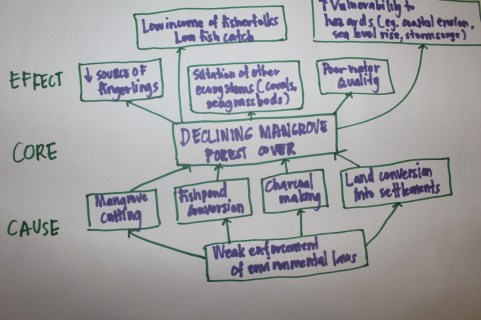 Low income of fisherfolks
Low fish catch
↑ Vulnerability to
hazards (eg. coastal erosion,
sea level rise, storm surge)
EFFECT
↓ SOURCE OF
fingerlings
Siltation of other
ecosystems (corals,
seagrass beds)
Poor water
Quality
CORE
DECLINING MANGROVE
FOREST COVER
CAUSE
Mangrove
cutting
Fishpond
conversion
Charcoal
making
Land conversion
into settlements
Weak enforcement
of environmental laws